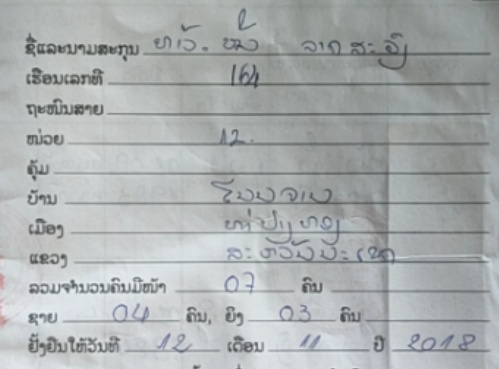 ຊື່ແລະນາມສະກຸນ ທ້າວ. ລາດສະວົງ
ເຮືອນເລກທີ 164
ຖະໜົນສາຍ
ໜ່ວຍ 12.
ຄຸ້ມ
ບ້ານ
ເມືອງ ທ່າປາງທອງ
ແຂວງ ສະຫວັນນະເຂດ
ລວມຈຳນວນຄົນມີໜ້າ 07 ຄົນ
ຊາຍ 04 ຄົນ, ຍິງ 03 ຄົນ
ຢັ້ງຢືນໃຫ້ວັນທີ 12 ເດືອນ 11 ປີ 2018